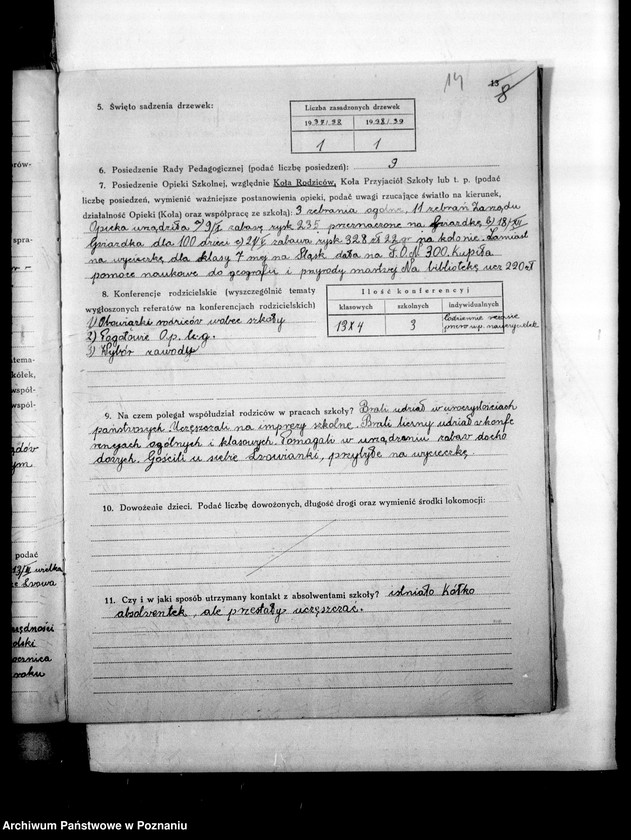 14
13
8
5. Święto sadzenia drzewek:
Liczba zasadzonych drzewek
1937/38 1938/39
1 1
6. Posiedzenie Rady Pedagogicznej (podać liczbę posiedzeń): 9
7. Posiedzenie Opieki Szkolnej, względnie Koła Rodziców, Koła Przyjaciół Szkoły lub t. p. (podać
liczbę posiedzeń, wymienić ważniejsze postanowienia opieki, podać uwagi rzucające światło na kierunek,
działalność Opieki (Koła) oraz współpracę ze szkołą): 3 zebrania ogólne, 11 zebrań Zarządu
Opieka urządziła zabawę zysk 235 przeznaczone na Gwiazdkę 6) 18/XII
Gwiazdka dla 100 dzieci c) zabawa zysk 328 zł 22 gr na kolonie. Zamiast
na wycieczkę dla klasy 7 mej na Śląsk dała na F.O.N 300. Kupiła
pomoce naukowe do geografii i przyrody Na bibliotekę ucz 220 zł
8. Konferencje rodzicielskie (wyszczególnić tematy
wygłoszonych referatów na konferencjach rodzicielskich)
Ilość konferencyj
klasowych szkolnych indywidualnych
13 x 4 3 Codziennie
1) Obowiązki rodziców wobec szkoły
2) Pogotowie O.p. l. g.
3) Wybór zawodu
9. Na czem polegał współudział rodziców w pracach szkoły? Brali udział w uroczystościach
państwowych. Uczęszczali na imprezy szkolne. Brali liczny udział w konfe
rencjach ogólnych i klasowych. Pomagali w urządzaniu zabaw docho
dowych. Gościli u siebie Lwowianki, przybyłe na wycieczkę
10. Dowożenie dzieci. Podać liczbę dowożonych, długość drogi oraz wymienić środki lokomocji:
11. Czy i w jaki sposób utrzymany kontakt z absolwentami szkoły? istniało Kółko
absolwentek, ale przestały uczęszczać.
Archiwum Państwowe w Poznaniu